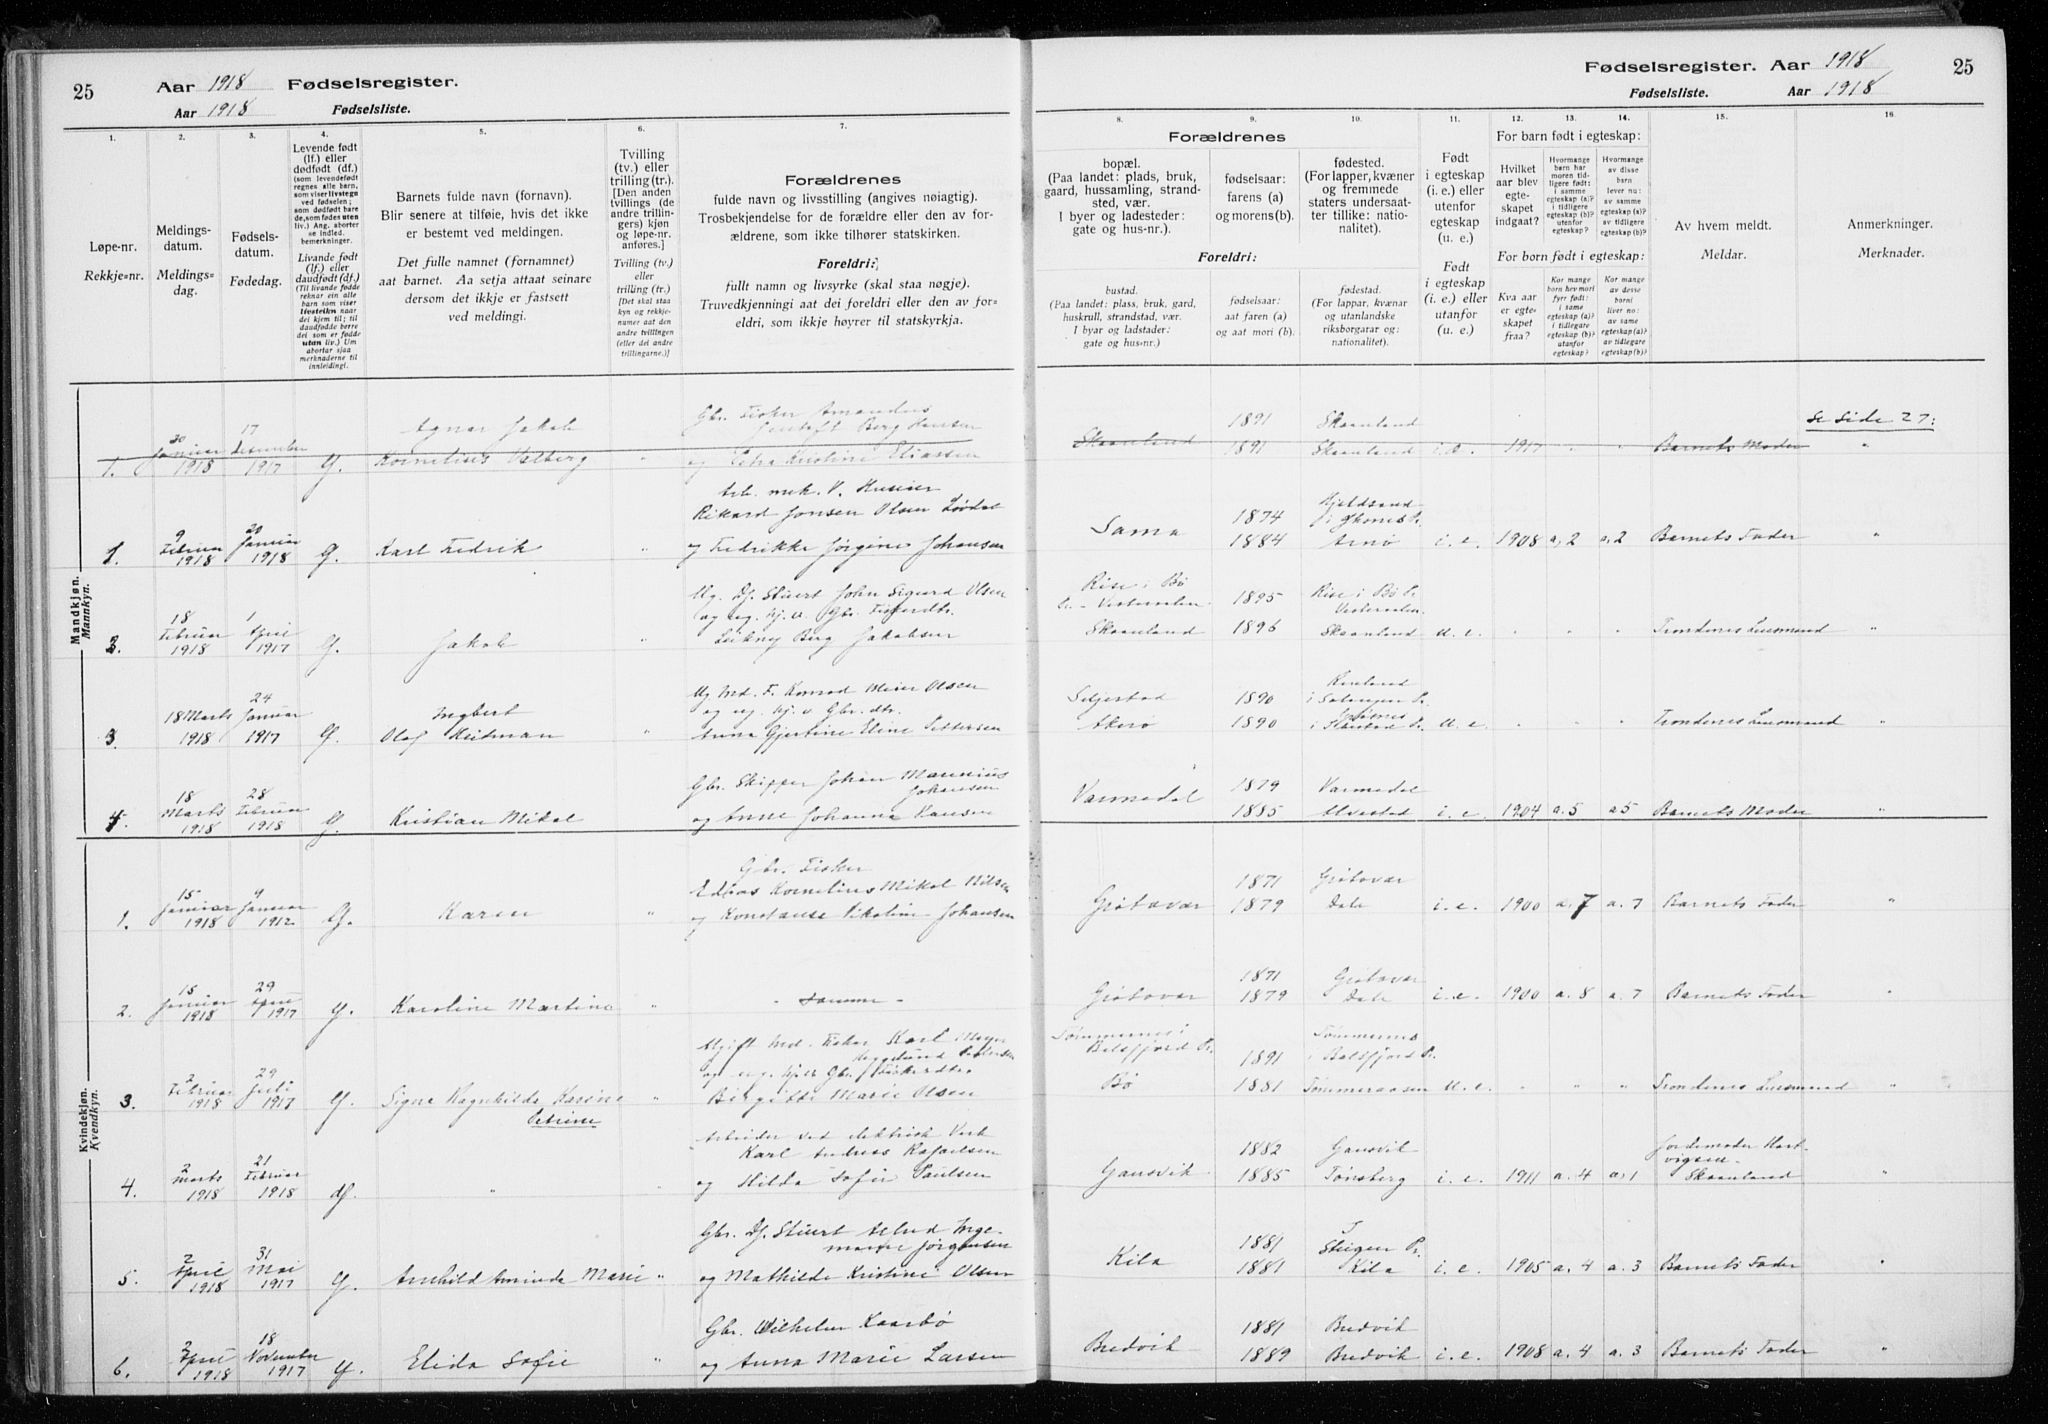 25 Aar 1918 Fødselsregister.
Aar 1918 Fødselsliste.
1. 2. 3. 4. 5. 6. 7.
Løpe-nr.
Rekkje-nr.
Meldings-
datum.
Meldings-
dag.
Fødsels-
datum.
Fødedag.
Levende født
(lf.) eller
dødfødt (df.)
(som levendefødt
regnes alle barn,
som viser livstegn
ved fødselen;
som dødfødt bare
de, som fødes uten
liv.) Ang. aborter
se indled.
bemerkninger.
Livande født
(lf.) eller
daudfødt (df.)
(Til livande fødde
reknar ein alle
barn som viser
livsteikn naar
dei kjem til; til
daudfødde berre
dei som er fødde
utan liv.) Um
abortar sjaa
merknaderne til
innleidingi.
Barnets fulde navn (fornavn).
Blir senere at tilføie, hvis det ikke
er bestemt ved meldingen.
Det fulle namnet (fornamnet)
aat barnet. Aa setja attaat seinare
dersom det ikkje er fastsett
ved meldingi.
Tvilling
(tv.) eller
trilling (tr.)
[Den anden
tvillings (de
andre trillin-
gers) kjøn
og løpe-nr.
anføres.]
Tvilling (tv.)
eller
trilling (tr.)
[Det skal staa
kyn og rekkje-
numer aat den
andre tvillingen
(eller dei andre
trillingarne.)]
Forældrenes
fulde navn og livsstilling (angives nøiagtig).
Trosbekjendelse for de forældre eller den av for-
ældrene, som ikke tilhører statskirken.
Foreldri:
fullt namn og livsyrke (skal staa nøgje).
Truvedkjenningi aat dei foreldri eller den av for-
eldri, som ikkje høyrer til statskyrkja.
Mandkjøn.
Mankyn.
1. 20 Januar 1918 17 Desember 1917 Agnar Jakob
Kornelius Valberg
Gbr. Fisker Amandus
Berg Hansen
og Petra Kristine Eliassen
1. 9 Februar 1918 20 Januar 1918 Karl Fedrik
Rikard Jonsen Olsen
og Fedrikke Jørgine Johansen
2. 18 Februar 1918 1 April 1917 Jakob
Ug. Df. Stuert John Sigurd Olsen
og ug. hj. v. Gbr. Fiskerdtr.
Berg Jakobsen
3. 18 Marts 1918 24 Januar 1917 Ingbert
Olaf
Ug Md. F. Konrad Meier Olsen
og ug. hj. v. Gbr. dtr.
Anna Gjertine Eline Pettersen
4. 18 Marts 1918 28 Februar 1918 Kristian Mikal
Gbr. Skipper Johan Marenius
Johansen
og Anne Johanna Hansen
Kvindekjøn.
Kvendkyn.
1. 15 Januar 1918 9 Januar 1912 Karen
Gbr. Fisker
Kornelius Mikal Nilsen
og Konstanse Nikoline Johansen
2. 15 Januar 1918 29 April 1917 Karoline Martine " - Samme -
3. 2 Februar 1918 29 Juli 1917 Signe Ragnhilda Karine
Petrine
Ugift Md. Fisker Karl Meyer
Pedersen
og ug. hj. v. Gbr. Fiskerdtr.
Birgitte Marie Olsen
4. 2 Marts 1918 21 Februar 1918 df. "
Arbeider ved elektrisk Verk
Karl Andreas Rafaelsen
og Hilda Sofie Paulsen
5. 2 April 1918 31 Mai 1917 Arnhild Aminda Marie "
Gbr. Df. Stuert Inge-
Jørgensen
og Mathilde Kristine Olsen
6. 2 April 1918 18 November 1917 Elida Sofie "
Gbr. Wilhelm Kaarbø
og Anna Marie Larsen
Fødselsregister. Aar 1918 25
Fødselsliste. Aar 1918
8. 9. 10. 11. 12. 13. 14. 15. 16.
Forældrenes
bopæl.
(Paa landet: plads, bruk,
gaard, hussamling, strand-
sted, vær.
I byer og ladesteder:
gate og hus-nr.).
fødselsaar:
farens (a)
og morens (b).
fødested.
(For lapper, kvæner
og fremmede
staters undersaat-
ter tillike: natio-
nalitet).
Foreldri:
bustad.
(Paa landet: plass, bruk, gard,
huskrull, strandstad, vær.
I byar og ladstader:
gate og hus-nr.)
fødselsaar:
aat faren (a)
og aat mori (b).
fødestad.
(For lappar, kvænar
og utanlandske
riksborgarar og:
nationalitet).
Født
i egteskap
(i. e.) eller
utenfor
egteskap
(u. e.)
Født
i egteskap
(i. e.) eller
utanfor
(u. e.)
For barn født i egteskap:
Hvilket
aar blev
egte-
skapet
indgaat?
Hvormange
barn har
moren tid-
ligere født:
i samme
egteskap (a)?
i tidligere
egteskap (b)?
utenfor
egteskap?
Hvormange
av disse
lever nu:
av samme
egteskap (a)?
av tidligere
egteskap (b)?
For born født i egteskap:
Kva aar
er egte-
skapet
fraa?
Kor mange
born hev mori
fyrr født:
i same
egteskap (a)?
i tidlegare
egteskap (b)?
utanfor
egteskap?
Kor mange
av desse
borni
lever no:
av same
egteskap (a)?
av tidlegare
egteskap (b)?
Av hvem meldt.
Meldar.
Anmerkninger.
Merknader.
1891 Skaanland Se Side 27:
Skaanland 1891 Skaanland i. e. 1917 " " Barnets Moder "
Sama 1874
1884 Arnø i. e. 1908 a, 2 a, 2 Barnets Fader "
Rise i Bø
Pr. - Vesteraalen 1895 Rise i Bø Pr.
Vesteraalen
Skaanland 1896 Skaanland u. e. " " " Trondenes Lensmand "
1890
i Salangen Pr.
Akerø 1890 i Pr. u. e. " " " Trondenes Lensmand "
Varmedal 1879 Varmedal
1885 Alvestad i. e. 1904 a. 5 a 5 Barnets Moder "
1871 Grøtavær
Grøtavær 1879 Dale i. e. 1900 a. 7 a. 7 Barnets Fader "
1871 Grøtavær
Grøtavær 1879 Dale i. e. 1900 a. 8 a. 7 Barnets Fader "
Tømmernes i
Balsfjord Pr. 1891 Tømmernes
i Balsfjord Pr.
Bø 1881 Tømmeraasen u. e. " " " Trondenes Lensmand "
1882 Gausvik Jordemoder Hart-
vigsen
Gausvik 1885 Tønsberg i. e. 1911 a. 4 a, 1 Skaanland "
1881 Steigen Pr.
Kila 1881 Kila i. e. 1905 a. 4 a. 3 Barnets Fader "
1881 Bredvik
Bredvik 1889 Bredvik i. e. 1908 a. 4 a. 3 Barnets Fader "